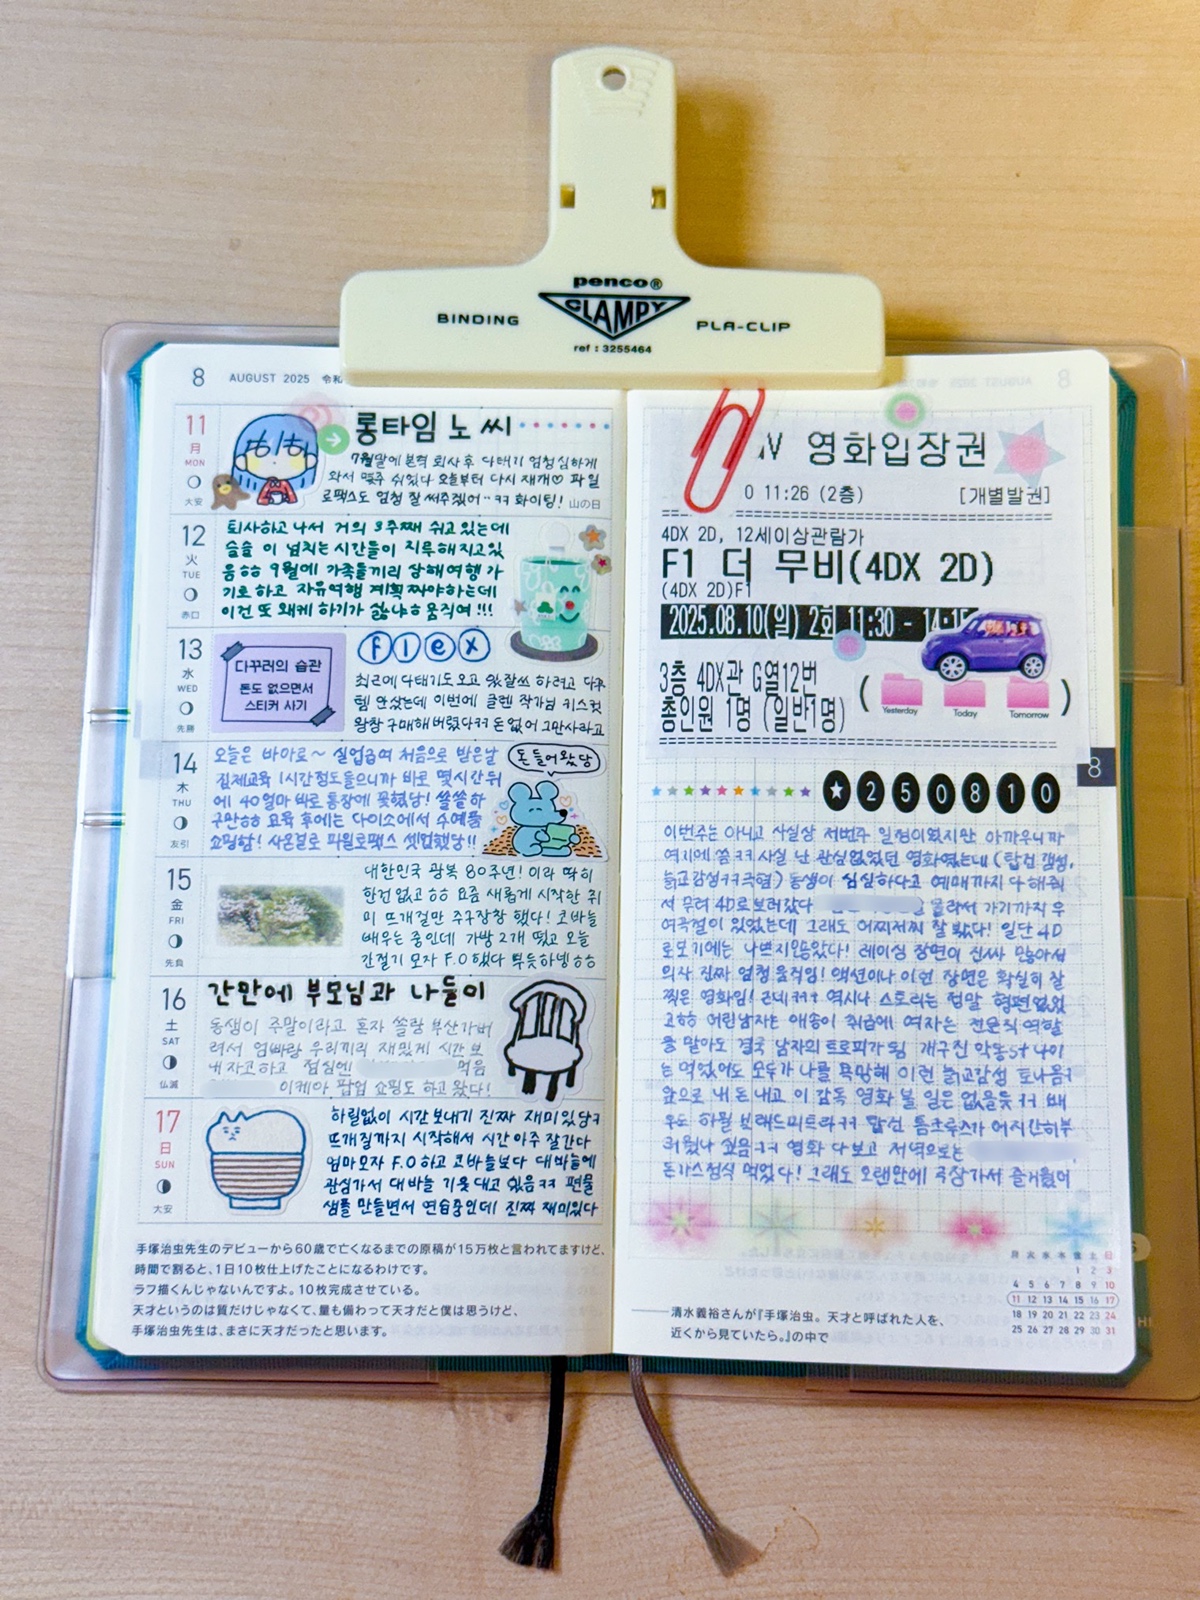 penco®
CLAMPY
BINDING
PLA-CLIP
ref : 3255464
8 AUGUST 2025 令和
11
月
MON
大安
롱타임 노 씨
7월말에 본격 퇴사 후 다태기 엄청심하게
와서 몇주 쉬었다 오늘부터 다시 재개♡ 파일
로팩스도 엄청 잘 써주겠어‥ㅋㅋ 화이팅!
山の日
12
火
TUE
赤口
퇴사하고 나서 거의 3주째 쉬고 있는데
슬슬 이 넘치는 시간들이 지루해지고있
음ㅎㅎ 9월에 가족들끼리 상해여행 가
기로 하고 자유여행 계획 짜야하는데
이건 또 왜케 하기가 싫냐ㅎ 움직여!!!
13
水
WED
先勝
다꾸러의 습관
돈도 없으면서
스티커 사기
flex
최근에 다태기도 오고 있잘쓰 하려고 다꾸
템 안샀는데 이번에 클렌 작가님 키스컷
왕창 구매해버렸다ㅋㅋ 돈 없어 그만사라고
14
木
THU
友引
오늘은 바아로~ 실업급여 처음으로 받은날
집체교육 1시간정도들으니까 바로 몇시간 뒤
에 40얼마 바로 통장에 꽂혔당! 쏠쏠하
구만ㅎㅎ 교육 후에는 다이소에서 수예품
쇼핑함! 사온걸로 파일로팩스 셋업했당!!
돈 들어왔당
15
金
FRI
先負
대한민국 광복 80주년! 이라 딱히
한건 없고ㅎㅎ 요즘 새롭게 시작한 취
미 뜨개질만 주구장창 했다! 코바늘
배우는 중인데 가방 2개 떴고 오늘
간절기 모자 F.O했다 뿌듯하넹ㅎㅎ
16
土
SAT
仏滅
간만에 부모님과 나들이
동생이 주말이라고 혼자 쏠랑 부산가버
려서 엄빠랑 우리끼리 재밌게 시간 보
내자고하고 점심엔 먹음
이케아 팝업 쇼핑도 하고 왔다!
17
日
SUN
大安
하릴없이 시간 보내기 진짜 재미있당ㅋ
뜨개질까지 시작해서 시간 아주 잘간다
엄마모자 F.O하고 코바늘보다 대바늘에
관심가서 대바늘 기웃 대고 있음ㅋㅋ 편물
샘플 만들면서 연습중인데 진짜 재미있다
手塚治虫先生のデビューから60歳で亡くなるまでの原稿が15万枚と言われてますけど、
時間で割ると、1日10枚仕上げたことになるわけです。
ラフ描くんじゃないんですよ。10枚完成させている。
天才というのは質だけじゃなくて、量も備わって天才だと僕は思うけど、
手塚治虫先生は、まさに天才だったと思います。
V 영화입장권
0 11:26 (2층)
[개별발권]
4DX 2D, 12세이상관람가
F1 더 무비(4DX 2D)
(4DX 2D)F1
2025.08.10(일) 2회 11:30 - 14:15
3층 4DX관 G열12번
총인원 1명 (일반1명)
Yesterday
Today
Tomorrow
8
★250810
이번주는 아니고 사실상 저번주 일정이였지만 아까우니까
여기에 씀ㅋㅋ 사실 난 관심없었던 영화였는데 (탑건 갬성,
늙고감성ㅋㅋ극혐) 동생이 심심하다고 예매까지 다해줘
서 무려 4D로보러갔다 몰라서 가기까지 우
여곡절이 있었는데 그래도 어찌저찌 잘 봤다! 일단 4D
로보기에는 나쁘지않았다! 레이싱 장면이 진짜 많아서
의자 진짜 엄청 움직임! 액션이나 이런 장면은 확실히 잘
찍은 영화임! 역시나 스토리는 정말 형편없었
고ㅎㅎ 어린남자는 애송이 취급에 여자는 전문직 역할
을 맡아도 결국 남자의 트로피가 됨 개구진 악동st 나이
는 먹었어도 모두가 나를 욕망해 이런 늙고감성 토나옴ㅋ
앞으로 내 돈 내고 이 감독 영화 볼 일은 없을듯ㅋㅋ 배
우도 하필 브래드피트라ㅋㅋ 탑건 톰크루즈가 어지간히부
러웠나 싶음ㅋㅋ 영화 다보고 저녁으로는
돈까스정식 먹었다! 그래도 오랜만에 극장가서 즐거웠어
月 火 水 木 金 土 日
1 2 3
4 5 6 7 8 9 10
11 12 13 14 15 16 17
18 19 20 21 22 23 24
25 26 27 28 29 30 31
清水義裕さんが『手塚治虫。天才と呼ばれた人を、
近くから見ていたら。』の中で